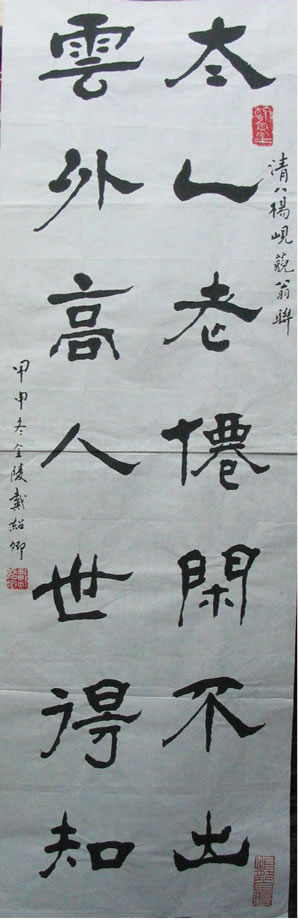 太乙老僊閑不出
清人楊峴藐翁聯
雲外高人世得知
甲申冬金陵戴紹卿